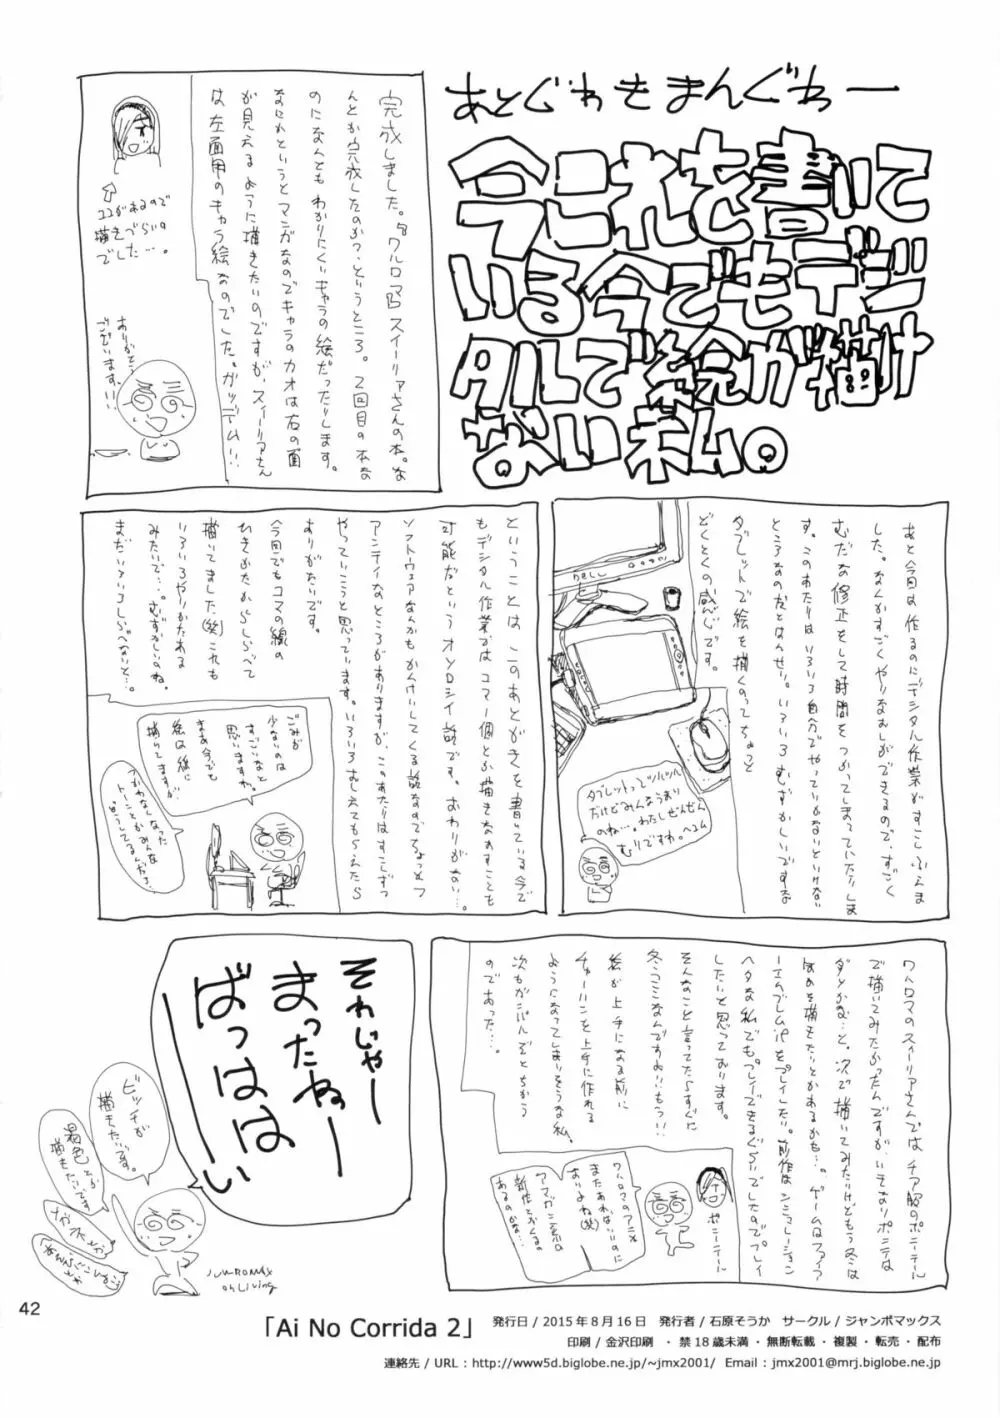 あとがきまんがー
今これを書いて
いる今でもデジ
タルで絵が描け
ない私。
完成しました。『ワルロマ』スイーリアさんの本。な
んとか完成したのかっ、というところ。2回目の本な
のになんともわかりにくいキャラの絵だったりします。
なにかというとマンガなのでキャラのカオは右の面
が見えるように描きたいのですが、スイーリアさん
は左面用のキャラ絵なのでした。ガッデム!!
ココがあるので
描きづらいの
でした…。
ありがとう
ございます!!
あと今回は作るのにデジタル作業がすこしふえま
した。なんかすごくやりなおしができるので、すごく
むだな修正をして時間をつかってしまっていたりしま
す。このあたりはいろいろ自分でやっていかないといけない
ところなのだとはんせい。いろいろむずかしいですな
タブレットで絵を描くのってちょっと
どくとくの感じです。
DELL
タブレットってツルツル
だけどみんなうまい
のね…。わたしぜんぜん
むりですわ。
ということは、このあとがきを書いている今で
もデジタル作業ではコマ一個とか描きなおすことも
可能だというオソロシイ話です。おわりがない…。
ソフトウェアなんかもかんけいしてくる話なのでちょっとフ
アンティなところがありますが、このあたりはすこしずつ
やっていこうと思っています。いろいろおしえてもらえたら
ありがたいです。
今回でもコマの線の
ひきかたからしらべて
描いてました(笑)これも
いろいろやりかたある
みたいで…。むずかしいのね。
まだいろいろしらべないと…。
ごみが
少ないのは
すごいなと
思いますね。
まあ今でも
絵は紙に
描いてますが
つかわなくなった
トーンとかみんな
どうしてるんだろ?
ワルロマのスイーリアさんではチア服のポニテール
で描いてみたかったんですが、いきなりポニテは
ダメかな…と。次で描いてみたいけどもう冬は
ーエムブレムifをプレイしたい。前作はシミュレーション
ヘタな私でもプレイできるぐらいでしたのでプレイ
したいと思っております。
そんなこと言ってたらすぐに
冬コミなんですよ!!もっっ!!
絵が上手になる前に
チャーハンを上手に作れる
ようになってしまいそうな私。
次もガンバルぞとちかう
のであった…。
ポニーテール
ワルロマのアニメ
またあればいいのに
ありよね(笑)
それじゃー
まったねー
ばっははーい
ビッチが
描きたいです。
褐色とか
描きたいです
メカフェチとか
JUMBOMAX
oh Living
42
「Ai No Corrida 2」
発行日 / 2015 年 8 月 16 日　発行者 / 石原そうか　サークル / ジャンボマックス
印刷 / 金沢印刷　・禁 18 歳未満・無断転載・複製・転売・配布
連絡先 / URL : http://www5d.biglobe.ne.jp/~jmx2001/　Email : jmx2001@mrj.biglobe.ne.jp